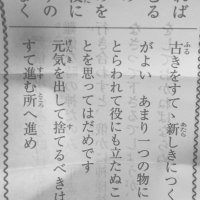 古きをすてゝ新しきにつく
がよい　あまり一つの物に
とらわれて役にも立たぬこ
とを思ってはだめです
元気を出して捨てるべきは
すて進む所へ進め